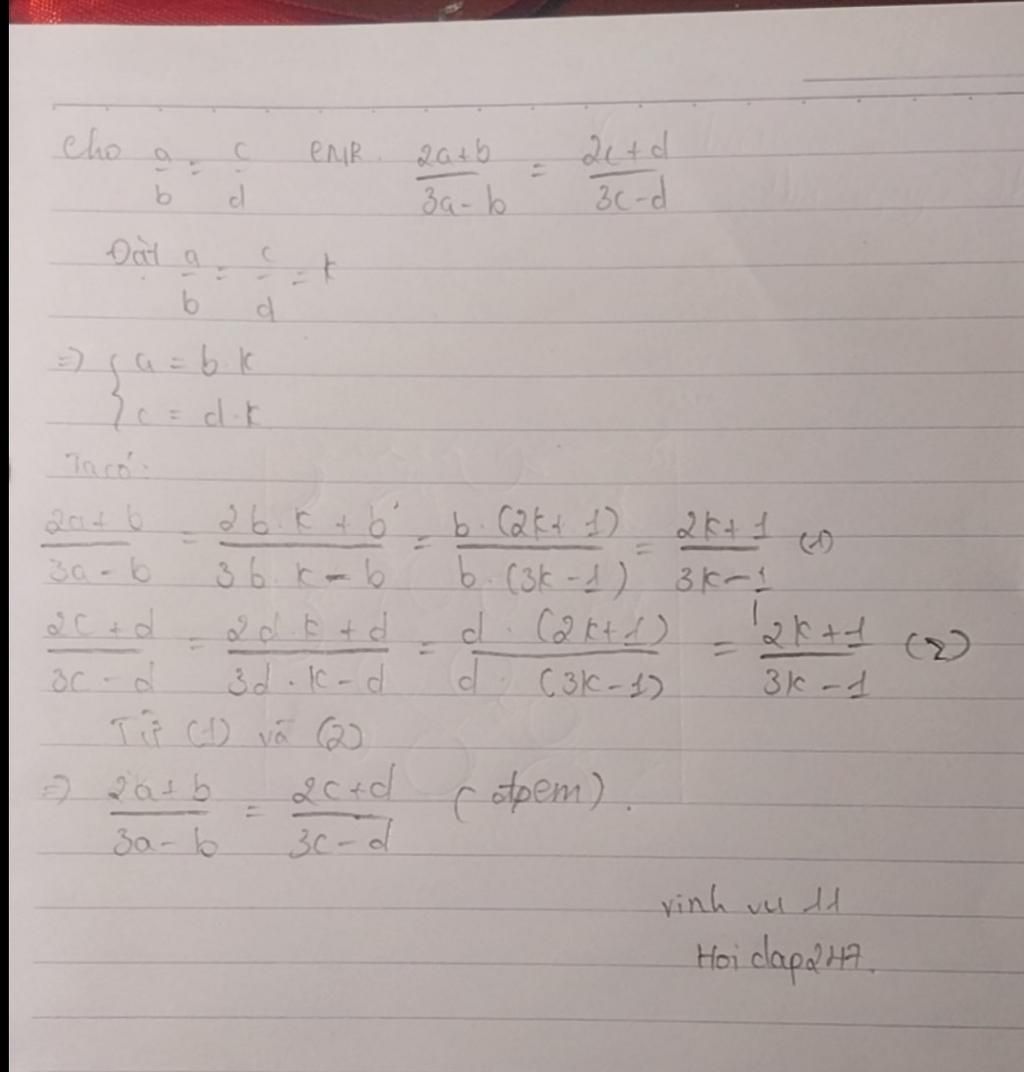 Cho a/b = c/d CMR 2a+b/3a-b = 2c+d/3c-d
Đặt a/b = c/d = k
=> { a = b.k
{ c = d.k
Ta có:
2a+b/3a-b = 2b.k+b/3b.k-b = b.(2k+1)/b.(3k-1) = 2k+1/3k-1 (1)
2c+d/3c-d = 2d.k+d/3d.k-d = d.(2k+1)/d.(3k-1) = 2k+1/3k-1 (2)
Từ (1) và (2)
=> 2a+b/3a-b = 2c+d/3c-d (đpcm).
vinh vu 11
Hoi dap247.